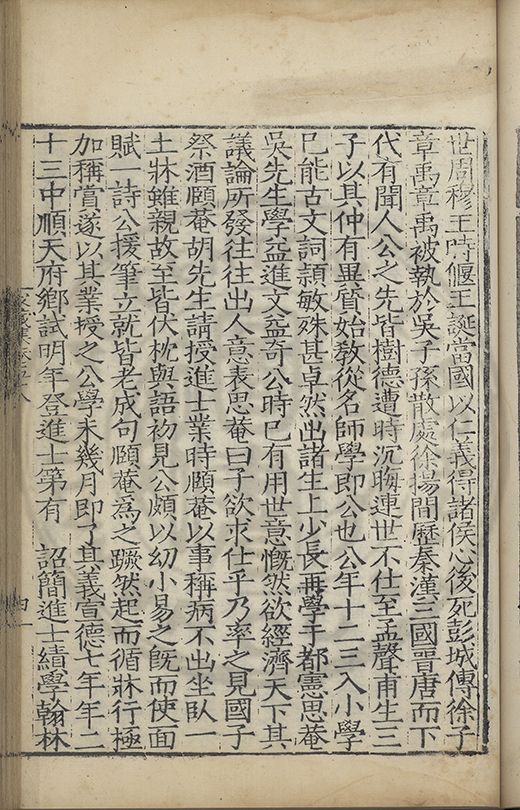 世周穆王時偃王誕當國以仁義得諸侯心後死彭城傳徐子
章禹章禹被執於吳子孫散處徐揚間歷秦漢三國晉唐而下
代有聞人公之先皆樹德遭時沉晦連世不仕至孟聲甫生三
子以其仲有異質始教從名師學即公也公年十二三入小學
已能古文詞頴敏殊甚卓然出諸生上少長再學于都憲思菴
吳先生學益進文益奇公時已有用世意慨然欲經濟天下其
議論所發往往出人意表思菴曰子欲求仕乎乃率之見國子
祭酒頤菴胡先生請授進士業時頤菴以事稱病不出坐臥一
土牀雖親故至皆伏枕與語初見公頗以幼小易之旣而使面
賦一詩公援筆立就皆老成句頤菴爲之蹶然起而循牀行極
加稱賞遂以其業授之公學未幾月即了其義宣德七年年二
十三中順天府鄉試明年登進士第有 詔簡進士績學翰林